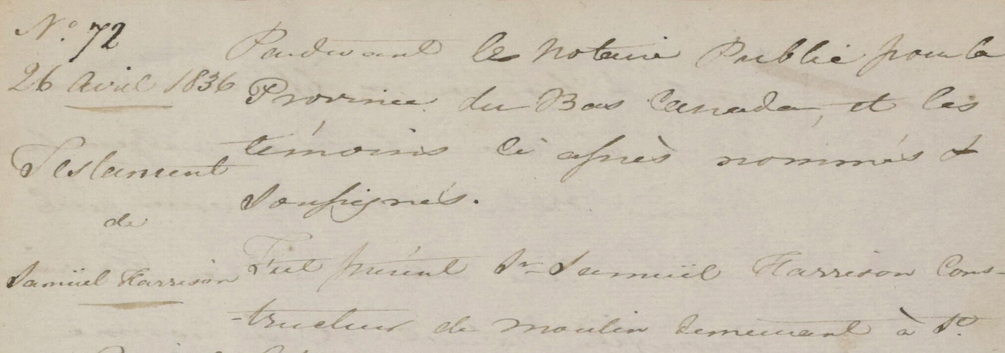 No. 72
26 Avril 1836
Testament
de
Samüel Harrison
Pardevant le Notaire Public pour la
Province du Bas Canada, et les
témoins ci après nommés &
Soussignés.
Fut présent Sr. Samüel Harrison Cons-
-tructeur de moulin demeurant à St.